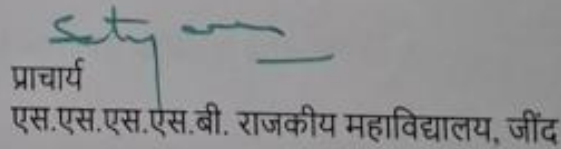 प्राचार्य
एस.एस.एस.एस.बी. राजकीय महाविद्यालय, जींद